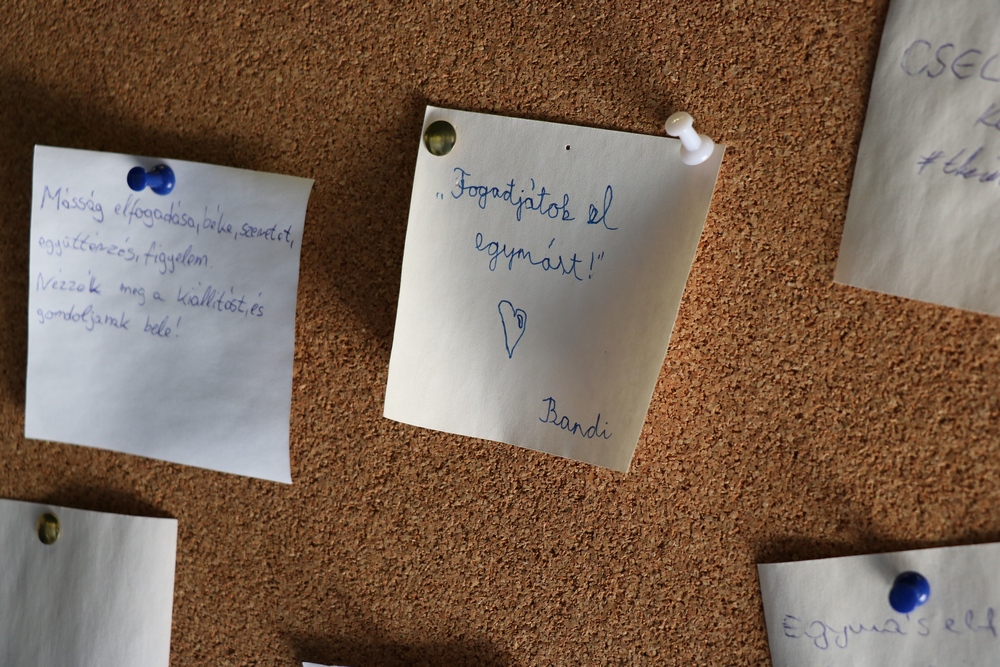 Másság elfogadása, béke, szeretet,
együttérzés, figyelem.
Nézzék meg a kiállítást, és
gondoljanak bele!
„Fogadjátok el
egymást!"
Bandi
CSEC
Egymás elf